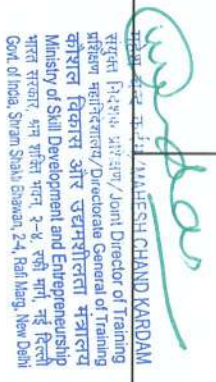 महेश चन्द कर्दम/MAHESH CHAND KARDAM
संयुक्त निदेशक प्रशिक्षण/Joint Director of Training
प्रशिक्षण महानिदेशालय/Directorate General of Training
कौशल विकास और उद्यमशीलता मंत्रालय
Ministry of Skill Development and Entrepreneurship
भारत सरकार, श्रम शक्ति भवन २-४, रफी मार्ग, नई दिल्ली
Govt. of India, Shram Shakti Bhawan, 2-4, Rafi Marg, New Delhi